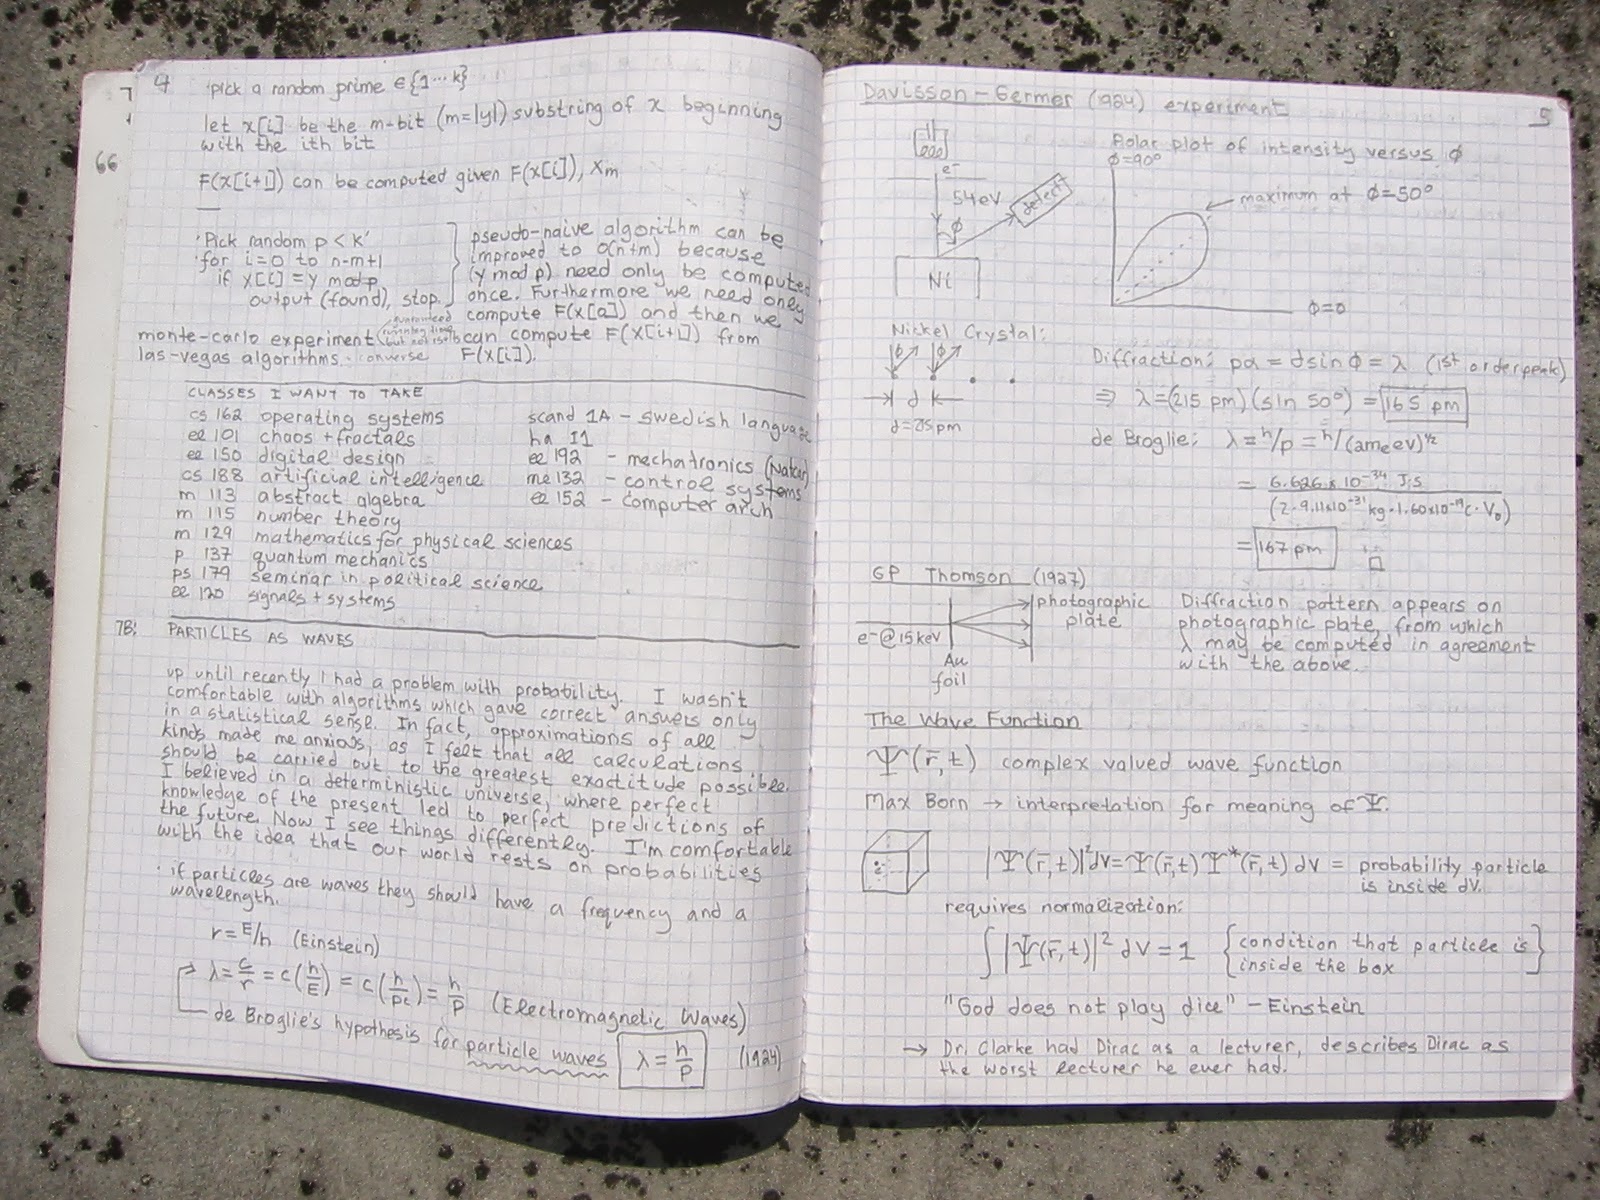 4
7
66
pick a random prime ∈ {1...k}
let x[i] be the m-bit (m=|y|) substring of x beginning
with the ith bit
F(x[i+1]) can be computed given F(x[i]), Xm
Pick random p < k
for i=0 to n-m+1
if X[i] = y mod p
output (found), stop.
pseudo-naive algorithm can be
improved to O(n+m) because
(y mod p) need only be computed
once. Furthermore we need only
compute F(x[0]) and then we
can compute F(x[i+1]) from
F(x[i]).
monte-carlo experiment
guaranteed
running time
but not
las-vegas algorithms - converse
CLASSES I WANT TO TAKE
cs 162 operating systems
ee 101 chaos + fractals
ee 150 digital design
cs 188 artificial intelligence
m 113 abstract algebra
m 115 number theory
m 129 mathematics for physical sciences
p 137 quantum mechanics
ps 179 seminar in political science
ee 120 signals + systems
scand 1A - swedish language
ha I1
ee 192 - mechatronics (Natcar)
me 132 - control systems
ee 152 - computer arch
7B: PARTICLES AS WAVES
up until recently I had a problem with probability. I wasn't
comfortable with algorithms which gave correct answers only
in a statistical sense. In fact, approximations of all
kinds made me anxious, as I felt that all calculations
should be carried out to the greatest exactitude possible.
I believed in a deterministic universe, where perfect
knowledge of the present led to perfect predictions of
the future. Now I see things differently. I'm comfortable
with the idea that our world rests on probabilities
· if particles are waves they should have a frequency and a
wavelength.
r = E/h (Einstein)
λ = c/r = c(h/E) = c(h/pc) = h/p (Electromagnetic Waves)
de Broglie's hypothesis for particle waves λ = h/p (1924)
Davisson - Germer (1924) experiment
5
e-
54eV
φ
detect
Ni
Polar plot of intensity versus φ
φ=90°
maximum at φ=50°
φ=0
Nickel Crystal:
φ φ
d
d=215pm
Diffraction: pd = d sin φ = λ (1st order peak)
⇒ λ = (215 pm)(sin 50°) = 165 pm
de Broglie: λ = h/p = h/(2meeV)^1/2
= 6.626 x 10^-34 J·s / (2·9.11x10^-31 kg·1.60x10^-19 C·V0)
= 167 pm
GP Thomson (1927)
e-@15keV
Au
foil
photographic
plate
Diffraction pattern appears on
photographic plate, from which
λ may be computed in agreement
with the above.
The Wave Function
Ψ(r̄,t) complex valued wave function
Max Born → interpretation for meaning of Ψ.
|Ψ(r̄,t)|²dV = Ψ(r̄,t)Ψ*(r̄,t) dV = probability particle
is inside dV.
requires normalization:
∫|Ψ(r̄,t)|² dV = 1 {condition that particle is
inside the box}
"God does not play dice" - Einstein
→ Dr. Clarke had Dirac as a lecturer, describes Dirac as
the worst lecturer he ever had.